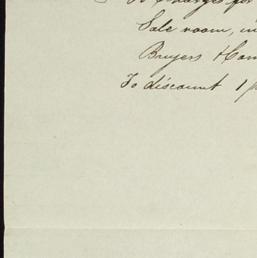 To charges for
Sale room, in
Buyers Ham
To discount 1 p